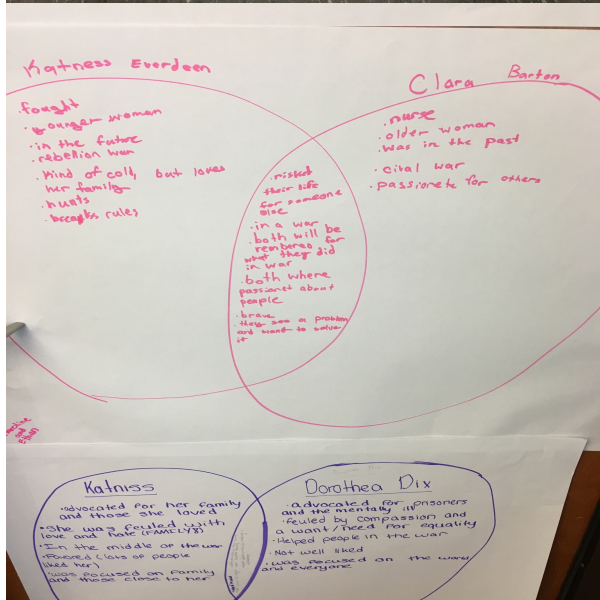 Katness Everdeen
Clara Barton
·fought
·younger woman
·in the future
·rebellion war
·Kind of cold, but loves
her family
·hunts
·breaks rules
·risked
their life
for someone
else
·in a war
·both will be
rembered for
what they did
in war
·both where
passionet about
people
·brave
·they see a problem
and want to solve
it
·nurse
·older woman
·was in the past
·cival war
·passionete for others
and
Katniss
·advocated for her family
and those she loved
·She was feuled with
love and hate (FAMILY)
·In the middle of the war
·Favored (lots of people
liked her)
·was focused on family
and those close to her
Dorothea Dix
·advocated for prisoners
and the mentally ill
·feuled by compassion and
a want/need for equality
·Helped people in the war
·Not well liked
·was focused on the world
and everyone